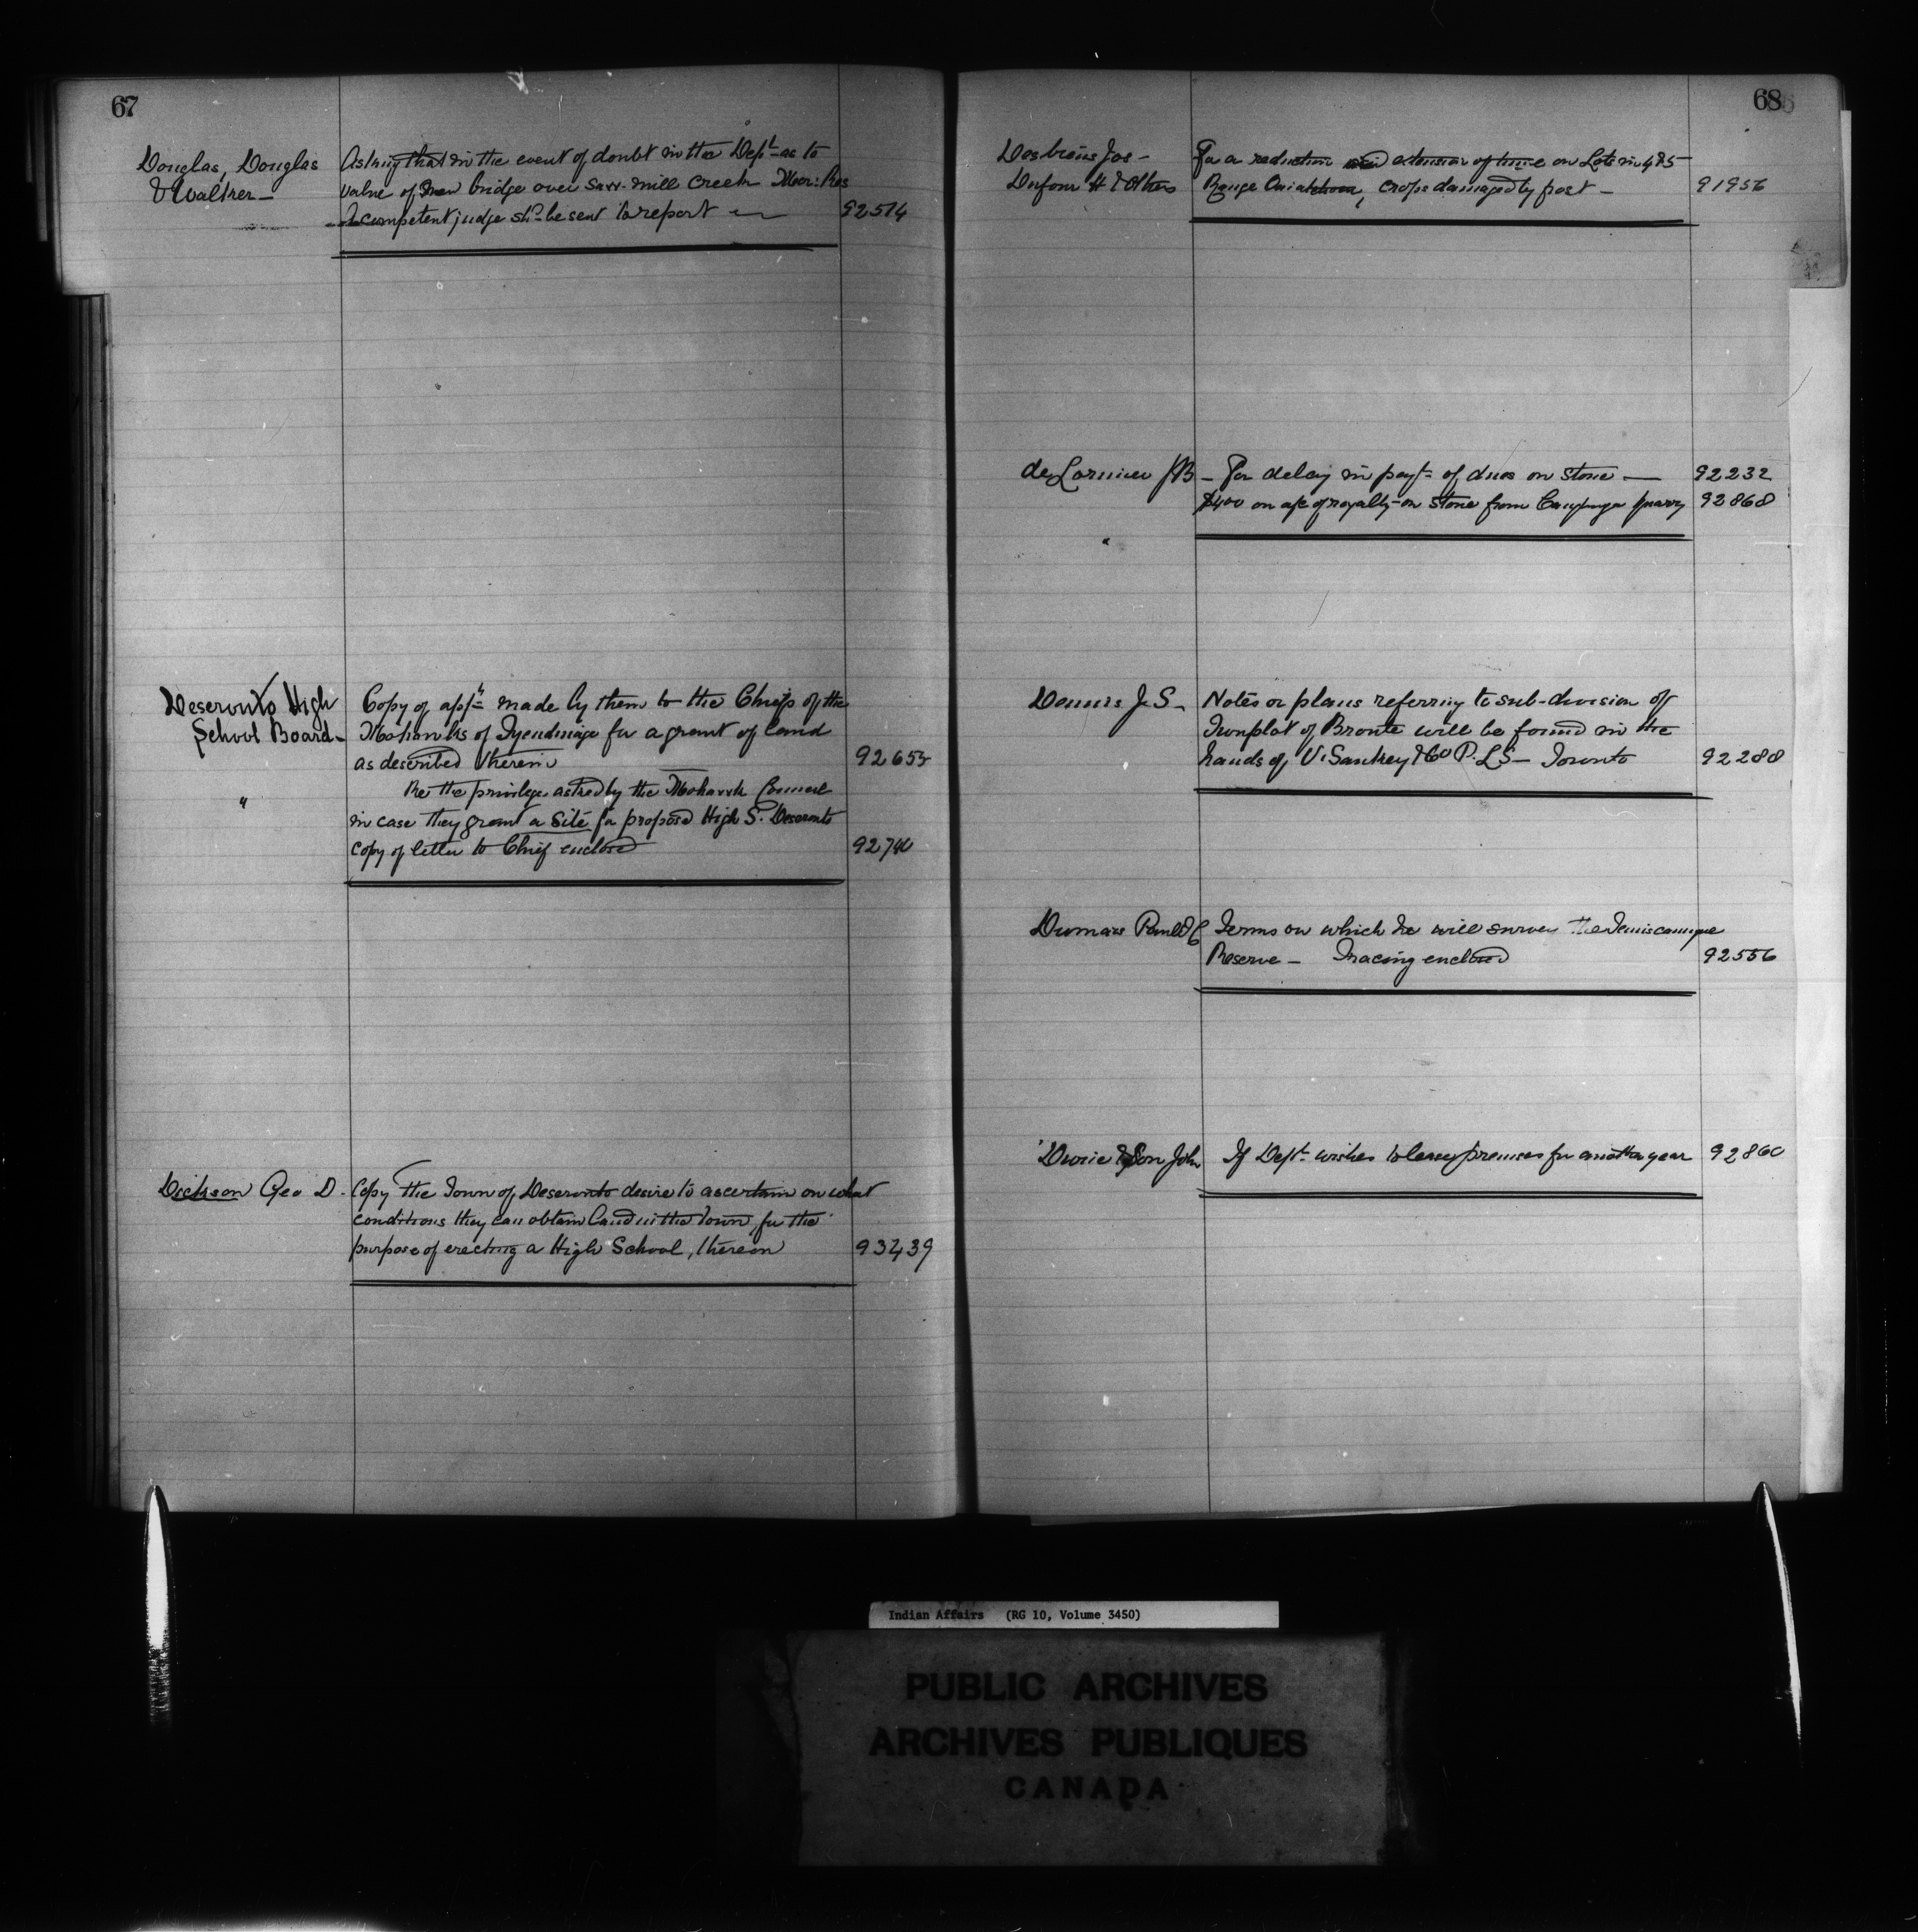 67
Douglas, Douglas
& Walker -
Asking that in the event of doubt in the Dept. as to
value of new bridge over Saw-mill Creek Mor: Res
a competent judge shd. be sent to report
92514
Deseronto High
School Board -
Copy of appn. made by them to the Chiefs of the
Mohawks of Tyendinaga for a grant of land
as described therein
92655
"
Re the privileges asked by the Mohawk Council
in case they grant a site for proposed High S. Deseronto
copy of letter to Chief enclosed
92740
Dickson Geo D.
Copy The Town of Deseronto desire to ascertain on what
conditions they can obtain land in the Town, for the
purpose of erecting a High School, thereon
93439
68
Desbiens Jos -
Dufour H & Others
For a reduction and extension of time on Lots in 4 & 5
Range, crops damaged by frost -
91956
de Lorimier JB
- For delay in payt. of dues on stone -
92232
$400 on a/c of royalty on stone from quarry
92868
Dennis J.S -
Notes or plans referring to sub-division of
Townplot of Bronte will be found in the
hands of V. Sankey & Co P.L.S - Toronto
92288
Dumais Paul
Terms on which he will survey the Temiscamingue
Reserve - Tracing enclosed
92556
Durie & Son John
If Dept. wishes to lease premises for another year
92860
Indian Affairs (RG 10, Volume 3450)
PUBLIC ARCHIVES
ARCHIVES PUBLIQUES
CANADA